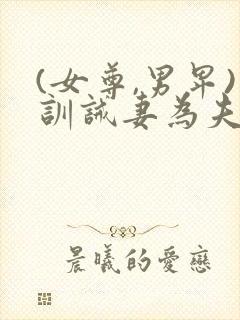 (女尊,男卑)
訓誡妻為夫
晨曦的愛戀